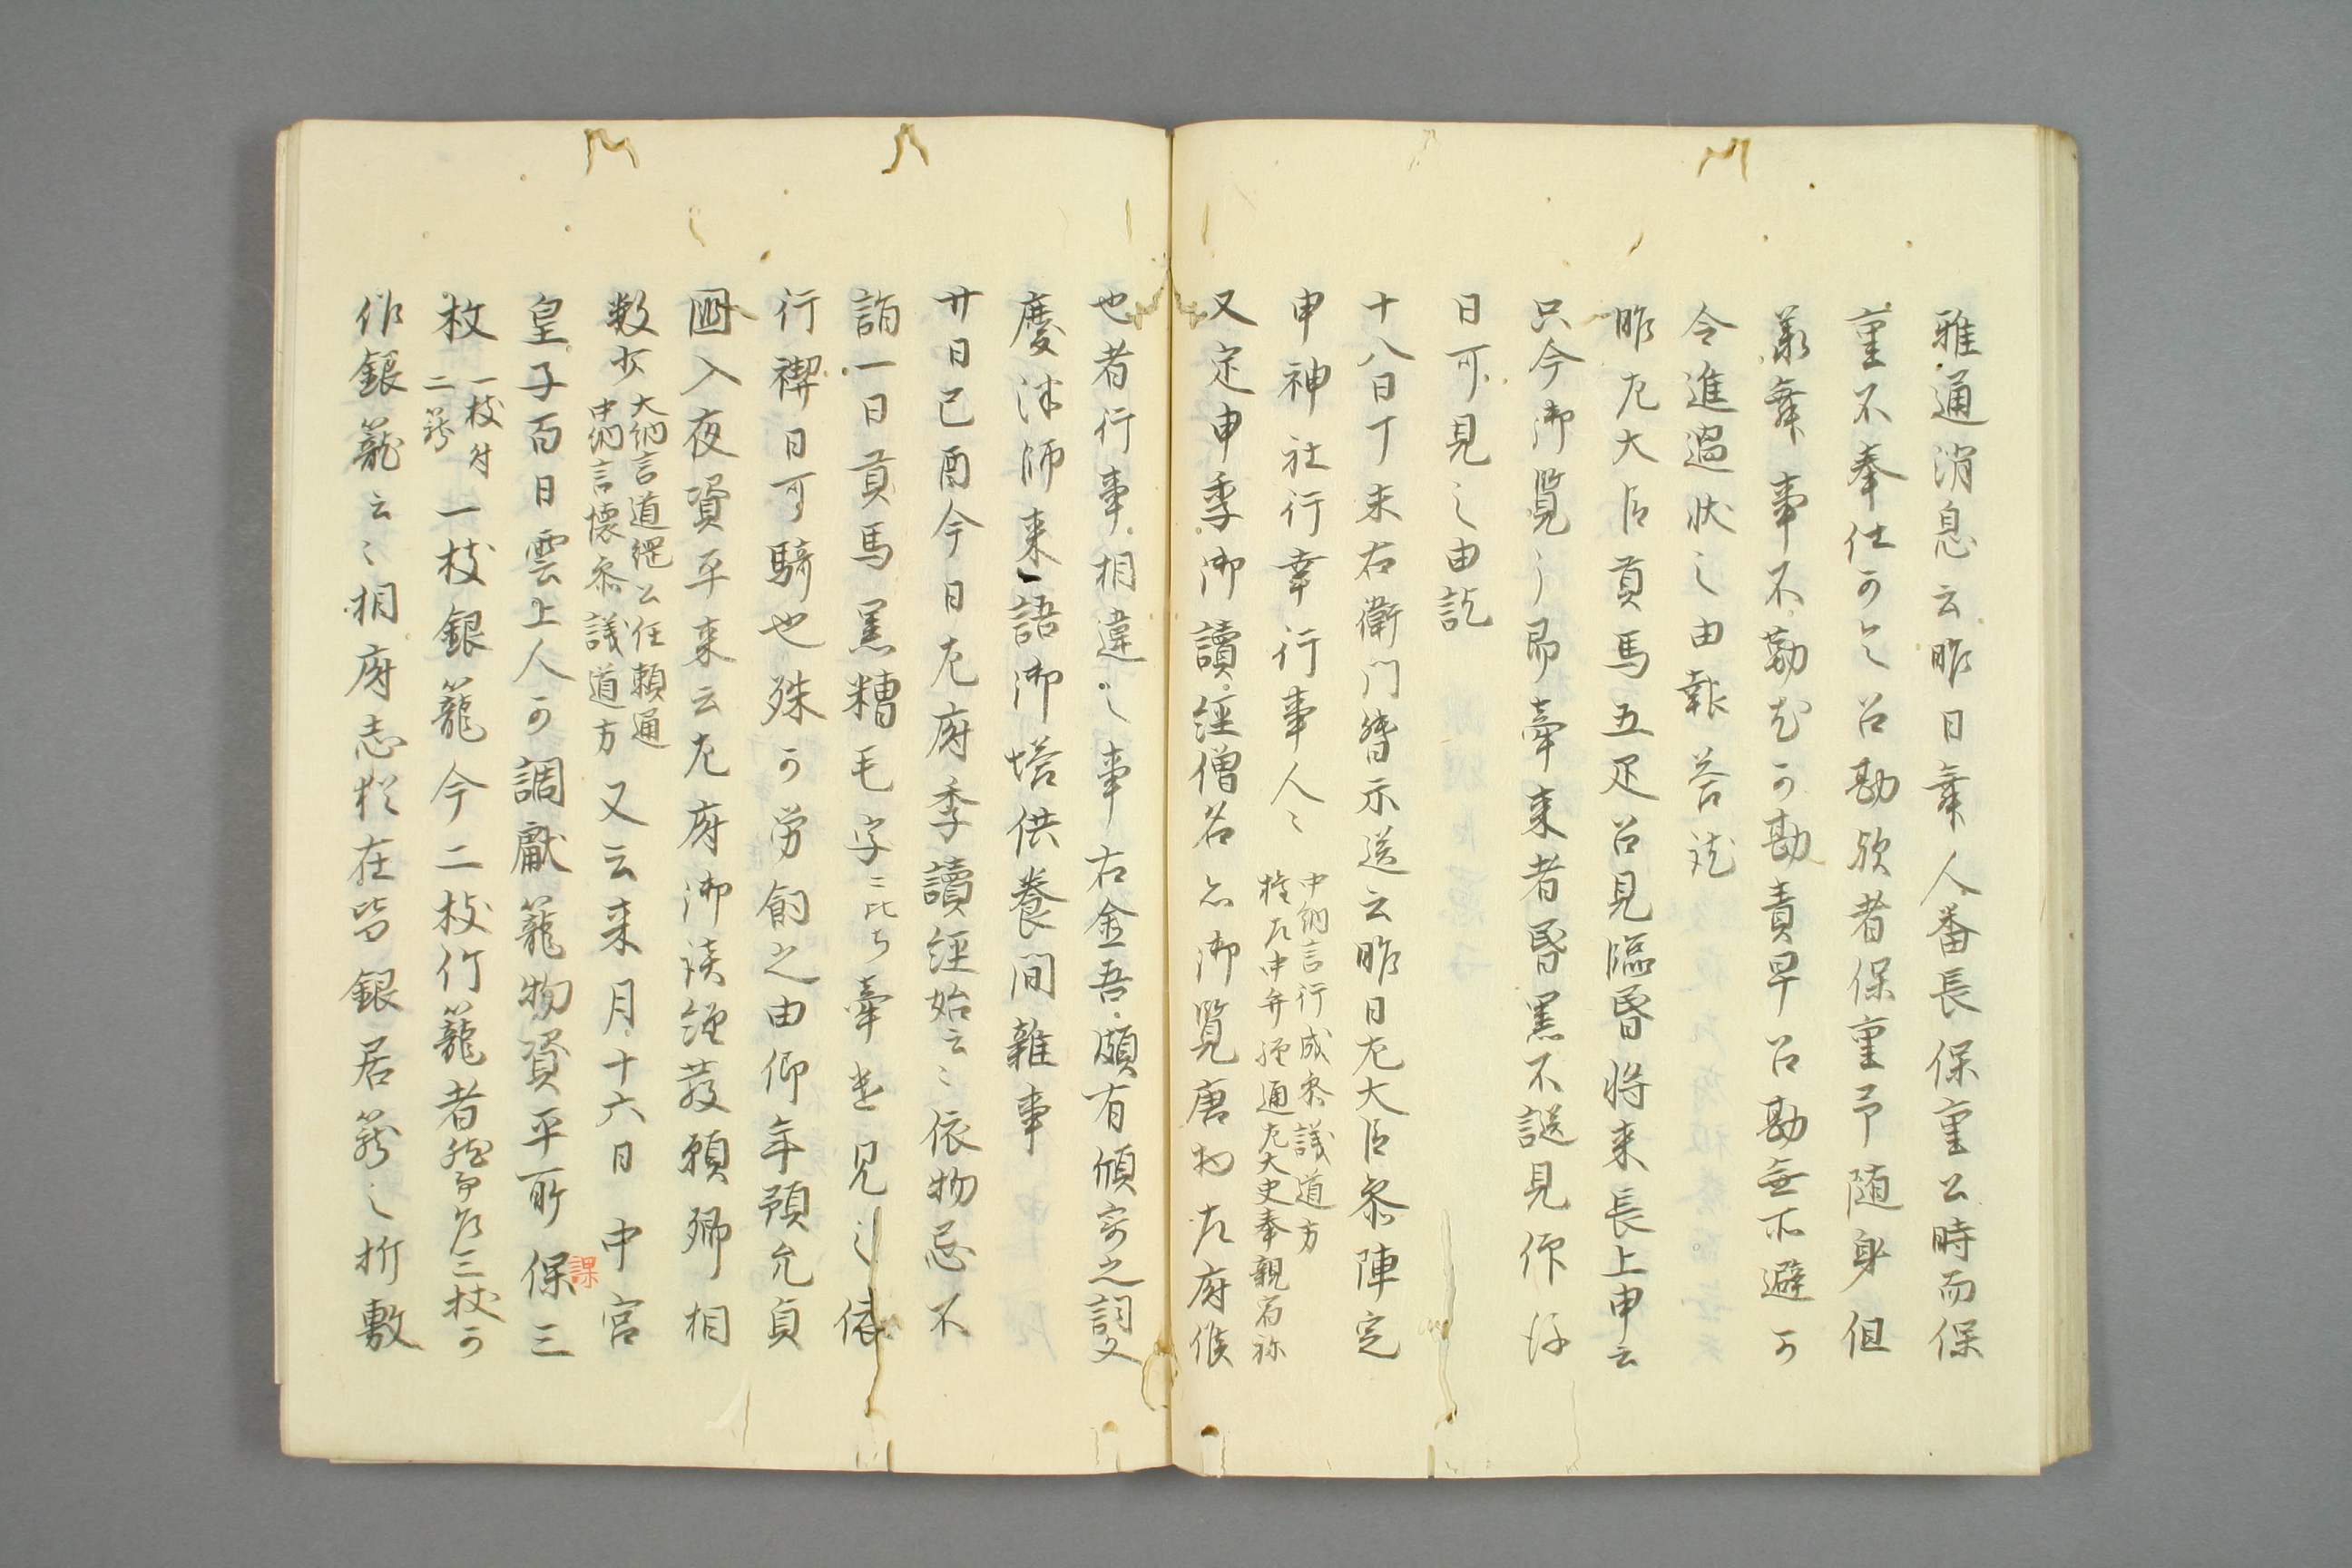 雅通消息云昨日舞人番長保重公時而保
重不奉仕可令召勘欤者保重予随身但
舞事不勤尤可勘責早召勘無所避可
令進過状之由報答訖
昨左大臣貢馬五疋召見臨昏将来長上申云
只今御覧了即牽来者昏黒不詳見仰
日可見之由訖
十八日丁未右衛門督示送云昨日左大臣参陣定
申神社行幸行事人々
中納言行成参議道方
権左中弁経通左大史奉親宿祢
又定申季御讀経僧名亦御覧唐物左府候
也者行事相違之事右金吾頗有傾奇之詞又
慶法師来語御塔供養間雑事
廿日己酉今日左府季讀経始云々依物忌不
詣一日貢馬黒糟毛字
牽出見之依
行禊日可騎也殊可労飼之由仰年預允貞
国入夜資平来云左府御読経發願卿相
数少
大納言道綱公任頼通
中納言懐参議道方
又云来月十六日中宮
皇子百日雲上人可調献籠物資平所保三
課
枚
一枝付
二籠
一枝銀籠今二枝竹籠者
三枝可
作銀籠云々相府志在皆銀居籠之折敷